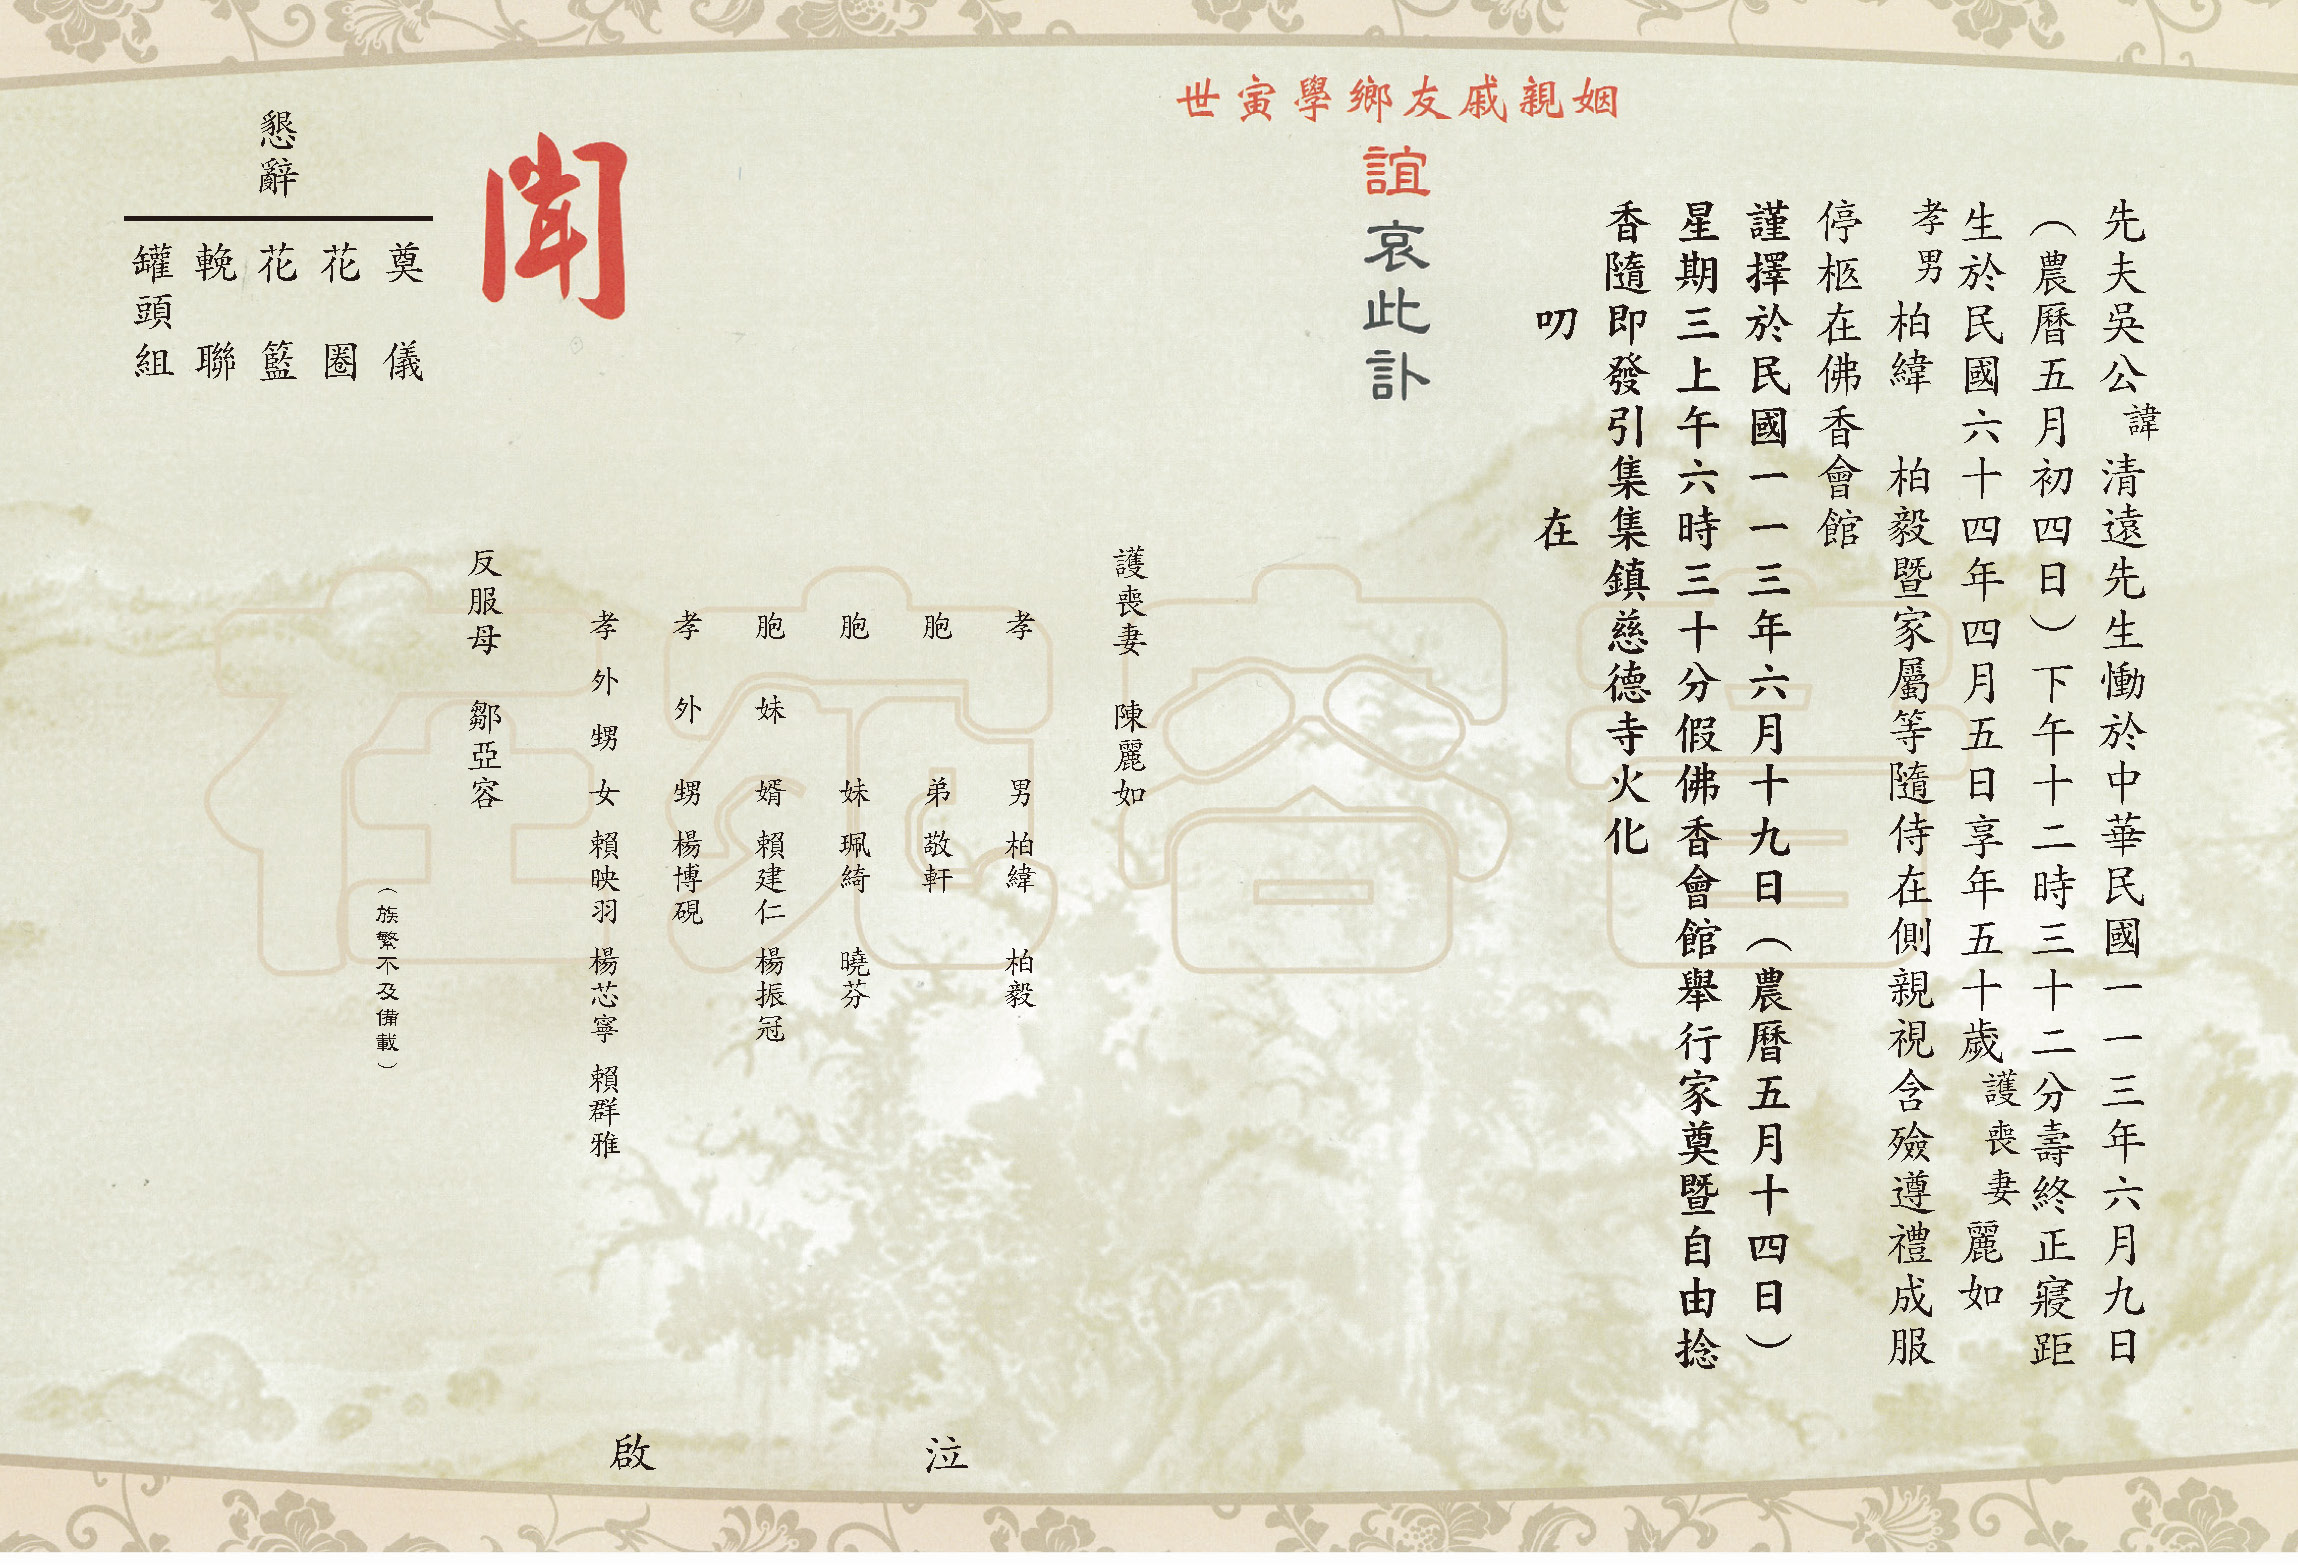 先夫吳公諱清遠先生慟於中華民國一一三年六月九日
（農曆五月初四日）下午十二時三十二分壽終正寢距
生於民國六十四年四月五日享年五十歲護喪妻麗如
孝男柏緯　柏毅暨家屬等隨侍在側親視含殮遵禮成服
停柩在佛香會館
謹擇於民國一一三年六月十九日（農曆五月十四日）
星期三上午六時三十分假佛香會館舉行家奠暨自由捻
香隨即發引集集鎮慈德寺火化
叨　在
姻親戚友鄉學寅世
誼哀此訃
聞
護喪妻　陳麗如
孝男　柏緯　柏毅
胞弟　敬軒
胞妹　珮綺　曉芬
胞妹婿　賴建仁　楊振冠
孝外甥　楊博硯
孝外甥女　賴映羽　楊芯寧　賴群雅
反服母　鄒亞容
（族繁不及備載）
泣啟
懇辭
奠儀
花圈
花籃
輓聯
罐頭組